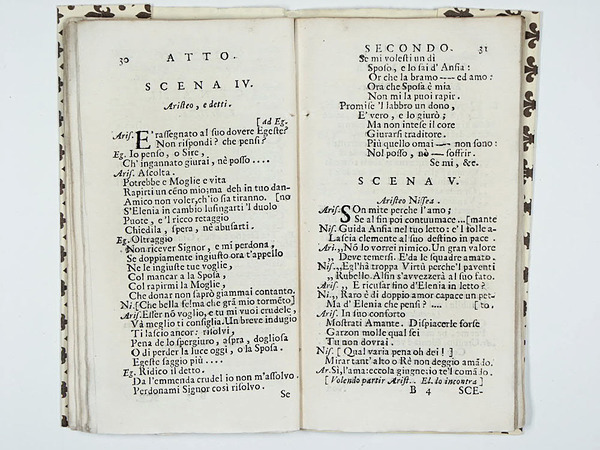 30 ATTO.
SCENA IV.
Aristeo, e detti.
[ad Eg.
Aris. E' rassegnato al suo dovere Egeste?
Non rispondi? che pensi?
Eg. Io penso, o Sire,
Ch' ingannato giurai, nè posso ....
Aris. Ascolta.
Potrebbe e Moglie e vita
Rapirti un cēno mio; ma deh in tuo dan-
Amico non voler, ch' io sia tiranno. [no
S'Elenia in cambio lusingarti 'l duolo
Puote, e 'l ricco retaggio
Chiedila, spera, nè abusarti.
Eg. Oltraggio
Non ricever Signor, e mi perdona,
Se doppiamente ingiusto ora t'appello
Ne le ingiuste tue voglie,
Col mancar a la Sposa,
Col rapirmi la Moglie,
Che donar non saprò giammai contanto.
Ni. [Che bella fe! ma che grā mio tormēto]
Aris. Esser nō voglio, e tu mi vuoi crudele,
Vá meglio ti consiglia. Un breve indugio
Ti lascio ancor: risolvi,
Pena de lo spergiuro, aspra, dogliosa
O di perder la luce oggi, o la Sposa.
Egeste saggio più ....
Eg. Ridico il detto.
Da l'emmenda crudel io non m'assolvo.
Perdonami Signor così risolvo.
Se
SECONDO. 31
Se mi volesti un di
Sposo, e lo sai d' Ansia:
Or che la bramo —— ed amo:
Ora che Sposa è mia
Non mi la puoi rapir.
Promise 'l labbro un dono,
E' vero, e lo giurò;
Ma non intese il core
Giurarsi traditore.
Più quello omai —— non sono:
Nol posso, nò — soffrir.
Se mi, &c.
SCENA V.
Aristeo Nissea.
Aris. SOn mite perche l'amo;
Se al fin poi contuumace... [mante
Nis. Guida Ansia nel tuo letto: e'l folle a-
Lascia clemente al suo destino in pace.
Ari. ,, Nò lo vorrei nimico. Un gran valore
,, Deve temersi. E' da le squadre amato.
Nis. ,, Egl'hà troppa Virtù perche'l paventi
,, Rubello. Alfin s'avvezzerà al suo fato.
Aris. ,, E ricusar sino d'Elenia in letto?
Ni. ,, Raro è di doppio amor capace un pet-
Ma d' Elenia che pensi? .... [to.
Aris. In suo conforto
Mostrati Amante. Dispiacerle forse
Garzon molle qual sei
Tu non dovrai.
Nis. [Qual varia pena oh dei!]
Mirar tant' alto o Rè non deggio amādo.
Ar. Sì, l'ama: eccola giugne: io te'l comādo.
[Volendo partir Arist. El. lo incontra]
B 4 SCE-